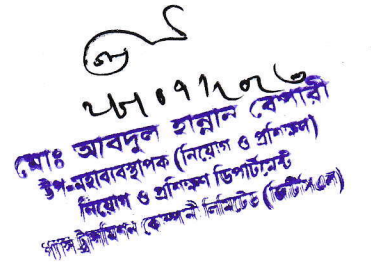 ২৮/০৭/২০২৩
মোঃ আবদুল হান্নান বেপারী
উপ-মহাব্যবস্থাপক (নিয়োগ ও প্রশিক্ষণ)
নিয়োগ ও প্রশিক্ষণ ডিপার্টমেন্ট
গ্যাস ট্রান্সমিশন কোম্পানী লিমিটেড (জিটিসিএল)